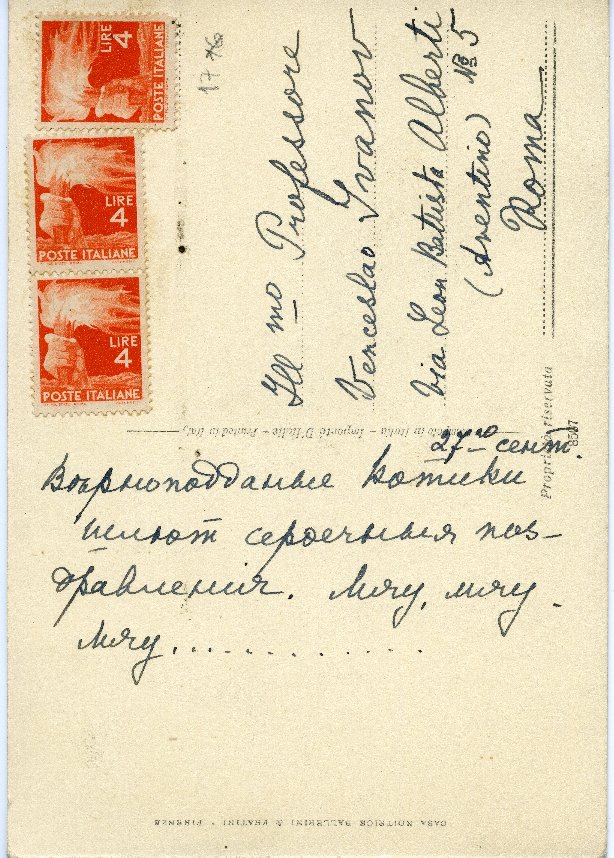 LIRE 4
POSTE ITALIANE
LIRE 4
POSTE ITALIANE
LIRE 4
POSTE ITALIANE
Ill mo Professore
Venceslao Ivanov
Via Leon Battista Alberti
№ 5
(Aventino)
Roma
Proprietà riservata
8537
in Italia - Importé D'Italie - Printed in Italy
27го сент.
Вѣрноподданые котики
шлют сердечныя поз-
дравленія. Мяу, мяу.
Мяу. . . . . . . . . . . .
CASA EDITRICE BALLERINI & FRATINI - FIRENZE